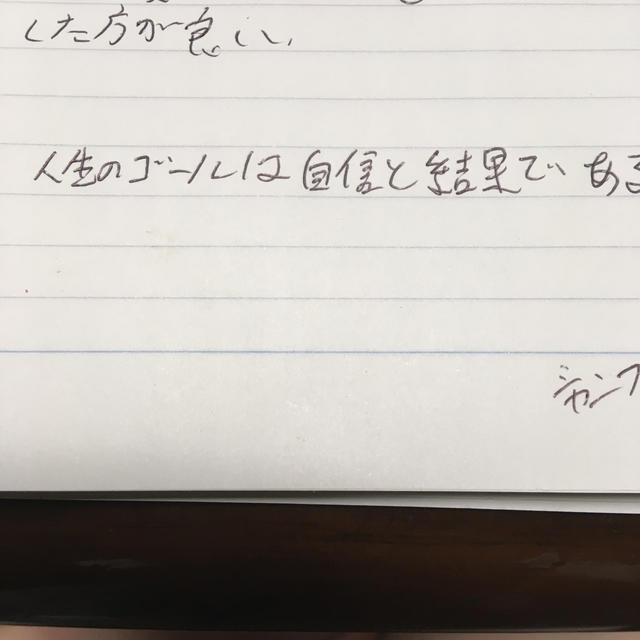 した方が良い、
人生のゴールは自信と結果である